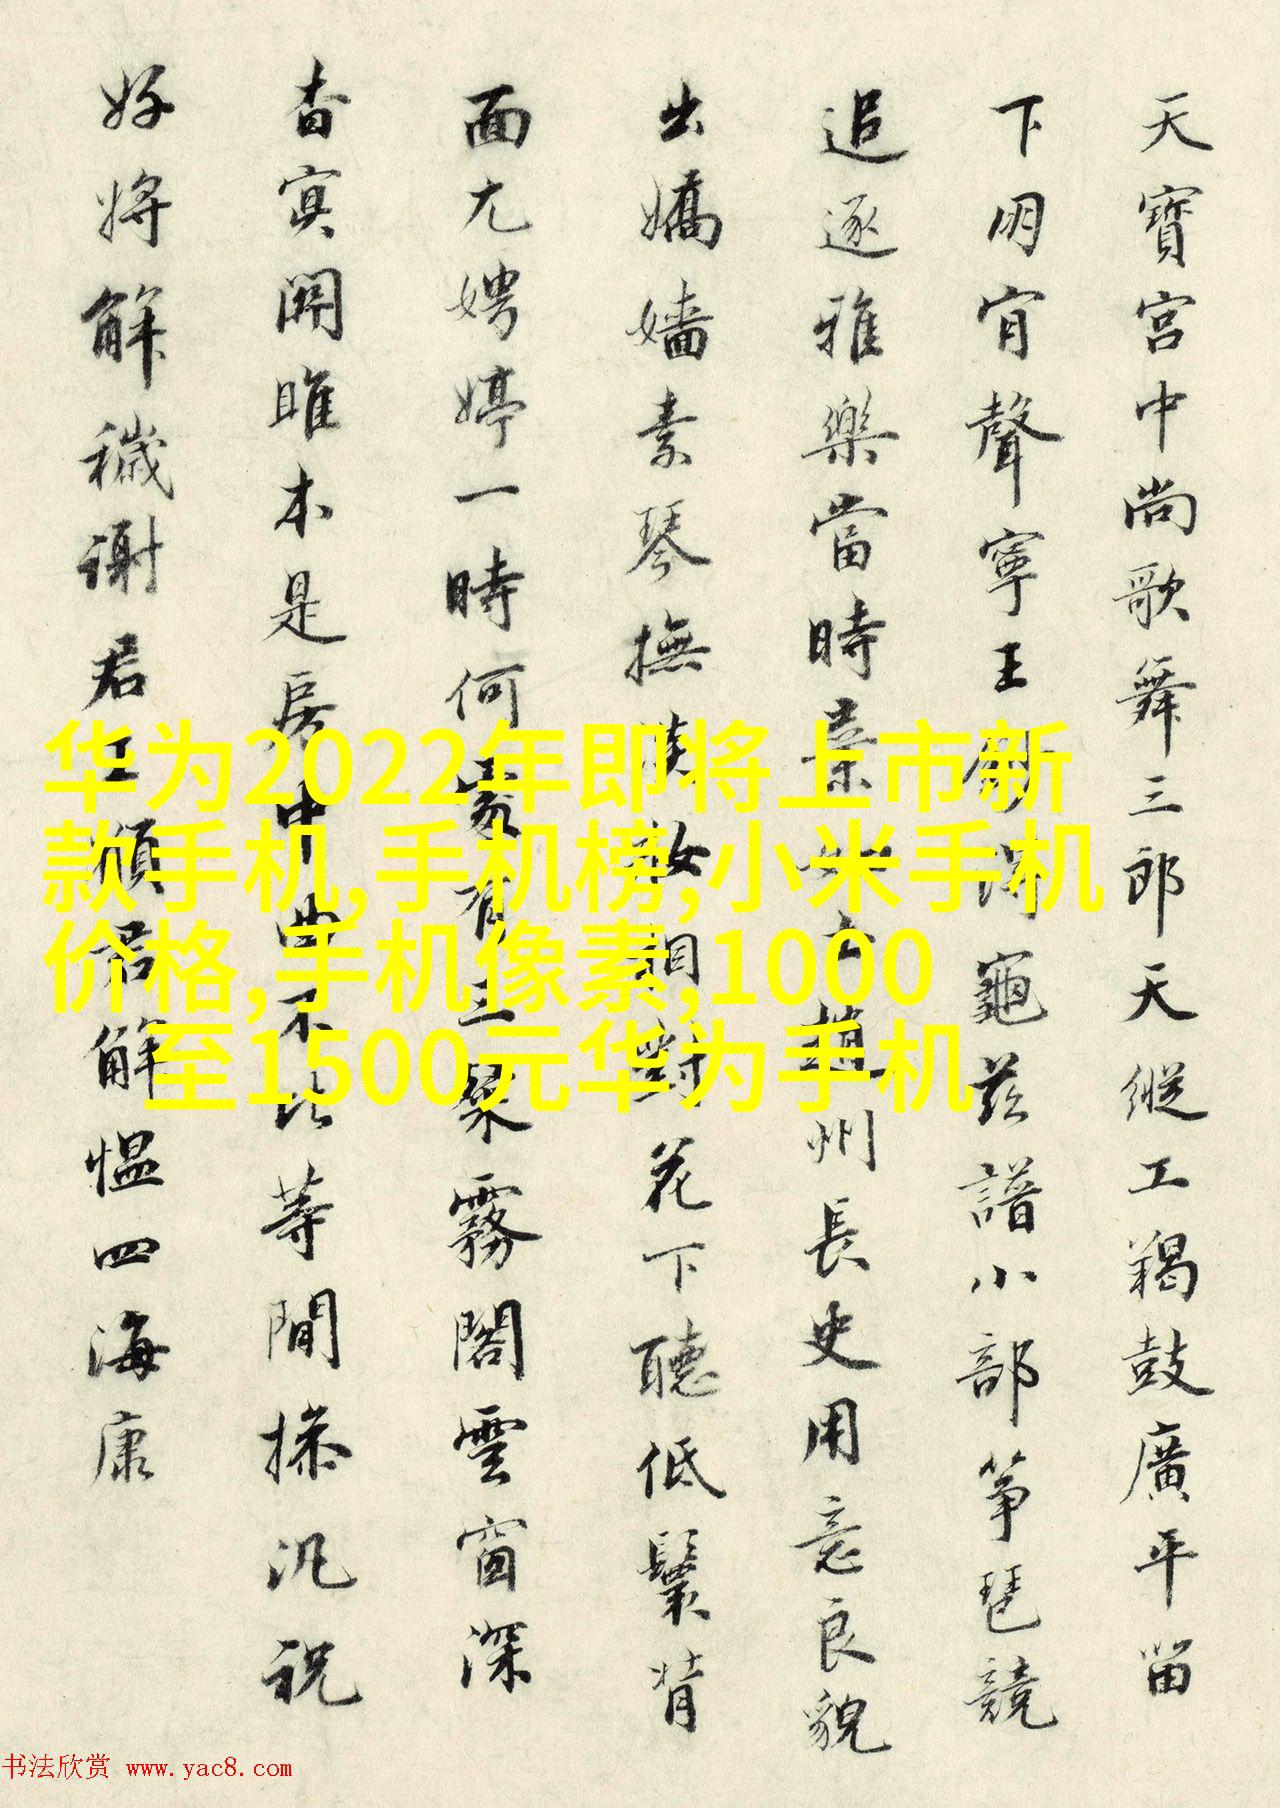 天寶宮中尚歌舞三郎天縱工羯鼓廣平㽞
下明宵聲寧王 龜茲譜小部筝琵競
追逐雅樂當時 州長史用意良貌
出嬌嬙素琴撫 相對花下聽低鬟背
面尤娉婷一時何 有三粲霧閣雲窗深
杳寞關雎本是房中曲不比等閒操汎祝
好將解穢謝君工願君解愠四海康
华为2022年即将上市新
款手机,手机榜,小米手机
价格,手机像素,1000
至1500元华为手机
书法欣赏 www.yac8.com